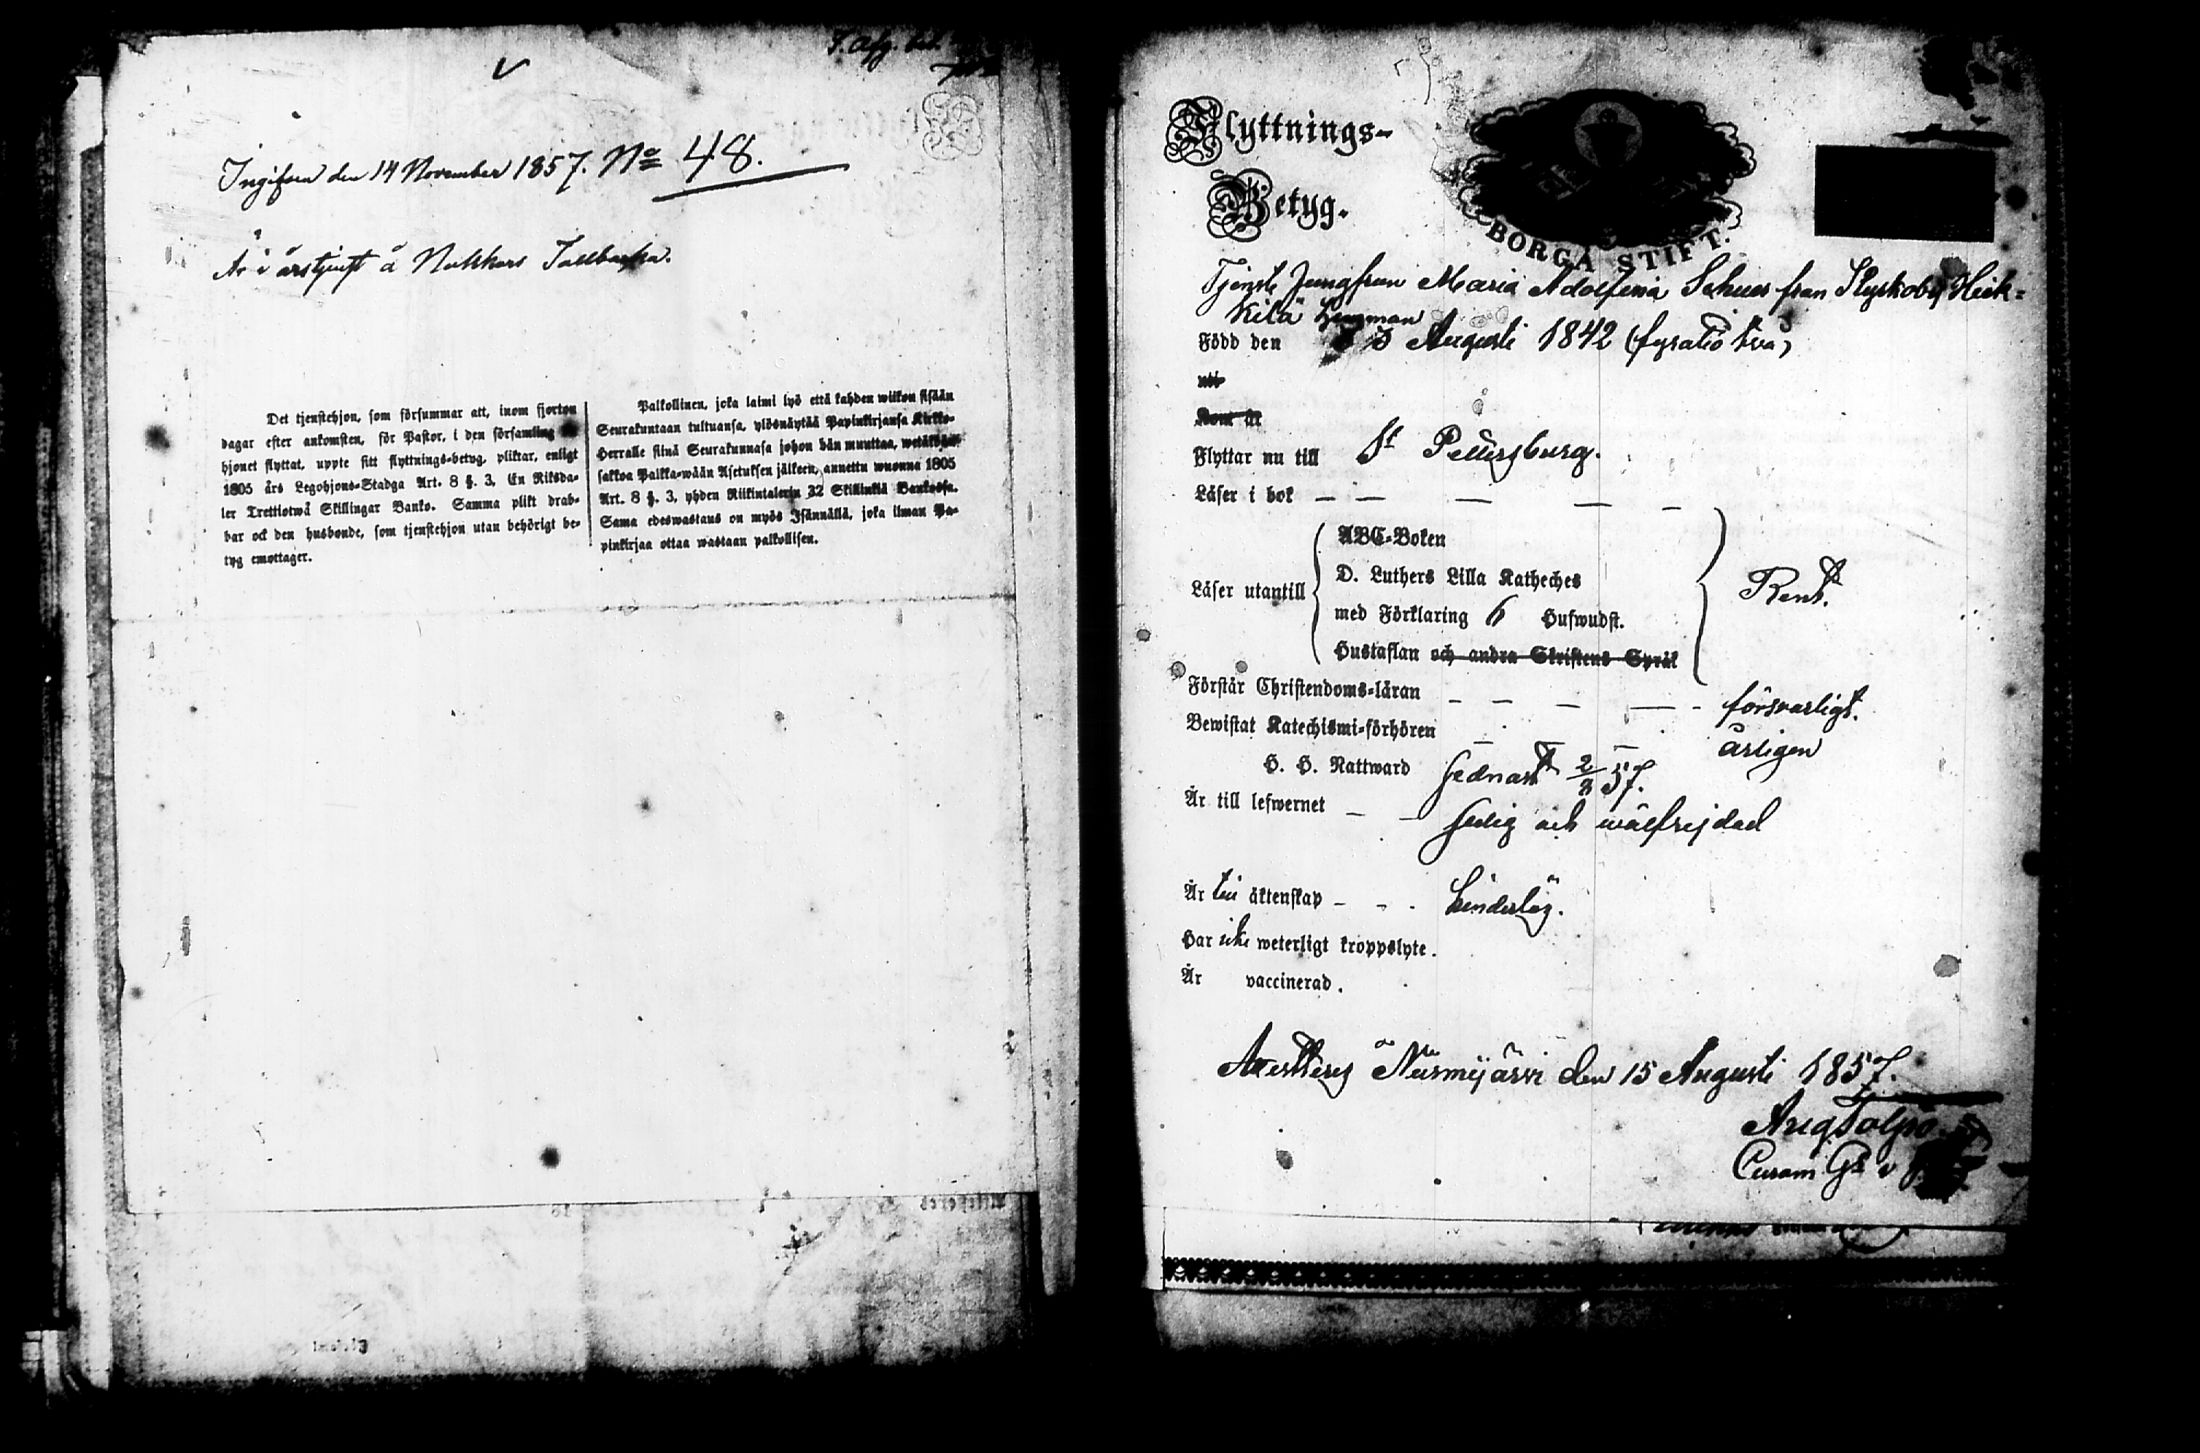 Ingifven den 14 November 1857. No 48.
Är i årstjenst å
Det tjenstehjon, som försummar att, inom fjorton
dagar efter ankomsten, för Pastor, i den församling
hjonet flyttat, uppte sitt flyttnings-betyg, pliktar, enligt
1805 års Legohjons-Stadga Art. 8 §. 3, En Riksda-
ler Trettiotwå Skillingar Banko. Samma plikt drab-
bar ock den husbonde, som tjenstehjon utan behörigt be-
tyg emottager.
Palkollinen, joka laimi lyö että kahden wiikon sisään
Seurakuntaan tultuansa, ylösnäyttää Papinkirjansa Kirkko-
Herralle siinä Seurakunnasa johon hän muuttaa, wetäköön
sakkoa Palkka-wään Asetuksen jälkeen, annettu wuonna 1805
Art. 8 §. 3, yhden Riikintalerin 32 Skillinkiä Bankossa.
Sama edeswastaus on myös Isännällä, joka ilman Pa-
pinkirjaa ottaa wastaan palkollisen.
Flyttnings-
Betyg.
BORGÅ STIFT.
Tjenste Jungfrun Maria Adolfina från Heik=
kilä
Född den Augusti 1842 (fyratio två)
uti
Kom år
Flyttar nu till St Petersburg.
Läser i bok
Läser utantill
ABC-Boken
D. Luthers Lilla Katheches
med Förklaring 6 Hufwudst.
Hustaflan och andra Skriftens Språk
Rent.
Förstår Christendoms-läran försvarligt.
Bewistat Katechismi-förhören årligen
H. H. Nattward sednast 2/8 57.
Är till lefwernet sedig och wälfrejdad
Är till äktenskap hinderlös.
Har icke weterligt kroppslyte.
Är vaccinerad.
Nurmijärvi den 15 Augusti 1857.